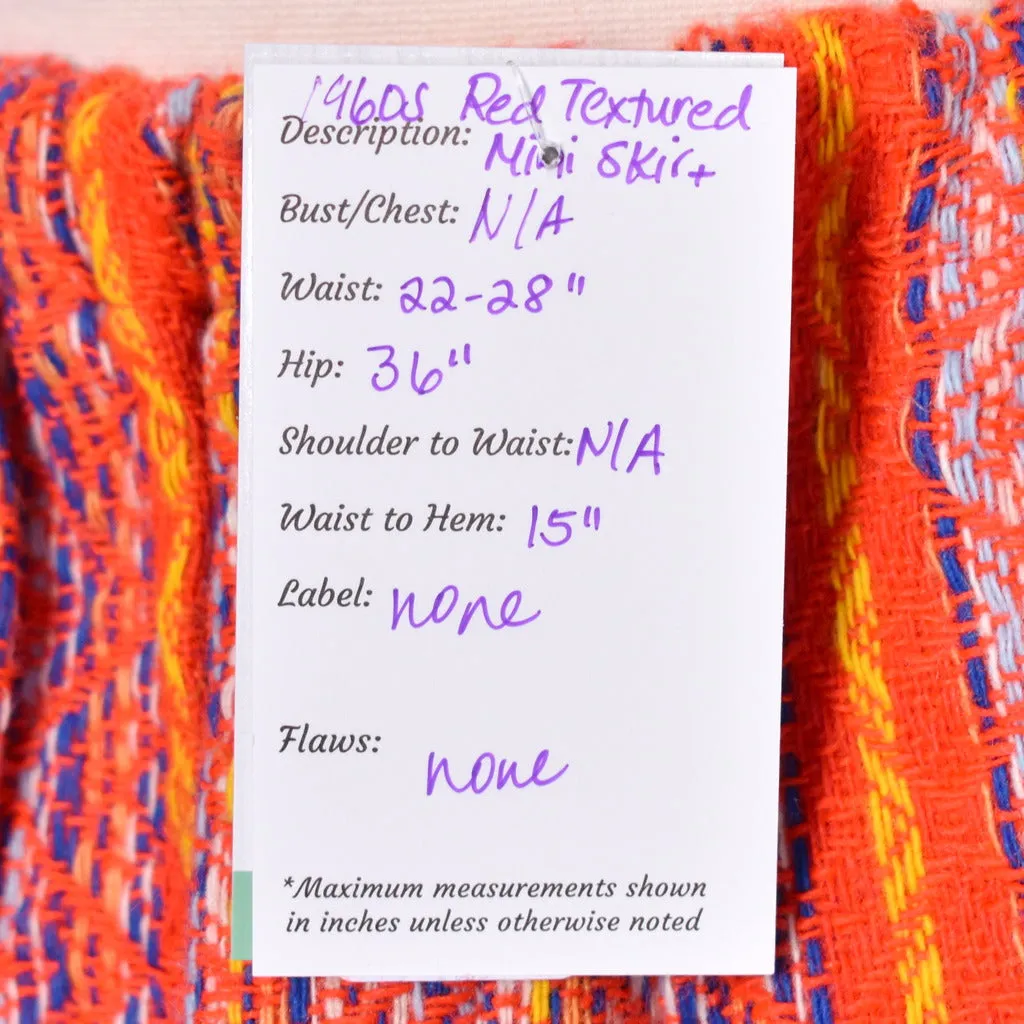 1960s Red Textured
Description: Mini Skirt
Bust/Chest: N/A
Waist: 22-28"
Hip: 36"
Shoulder to Waist: N/A
Waist to Hem: 15"
Label: none
Flaws:
none
*Maximum measurements shown
in inches unless otherwise noted